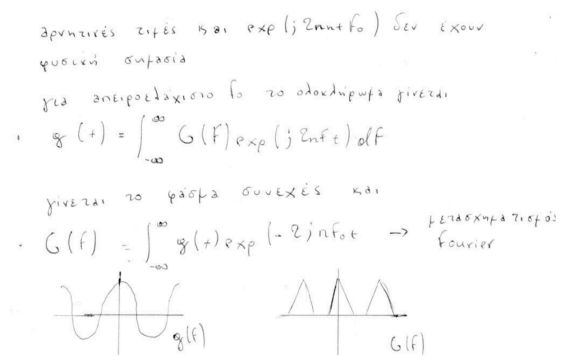 αρνητικές τιμές και exp(j2πntF₀) δεν έχουν
φυσική σημασία
για απειροελάχιστο fo το ολοκλήρωμα γίνεται
g(t) = ∫_{-∞}^{∞} G(F) exp(j2πft) dF
γίνεται το φάσμα συνεχές και
G(f) = ∫_{-∞}^{∞} g(t) exp(-2jπF₀t → μετασχηματισμός Fourier
g(f) G(f)